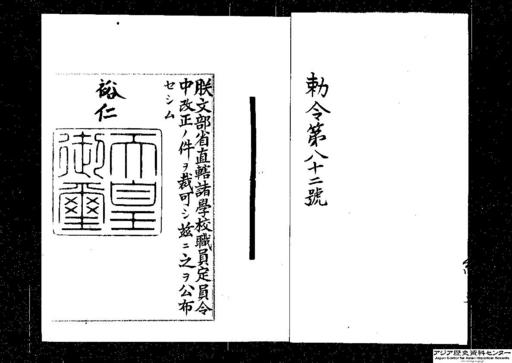 勅令第八十二號
朕文部省直轄諸學校職員定員令
中改正ノ件ヲ裁可シ茲ニ之ヲ公布
セシム
裕仁
天皇
御璽
アジア歴史資料センター
Japan Center for Asian Historical Records